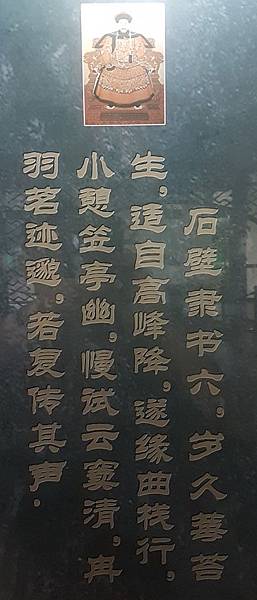 石壁隶书六，岁久莓苔
生，适自高峰降，遂缘曲栈行，
小憩笠亭幽，慢试云窦清，冉
羽茗迹邈，若复传其声．